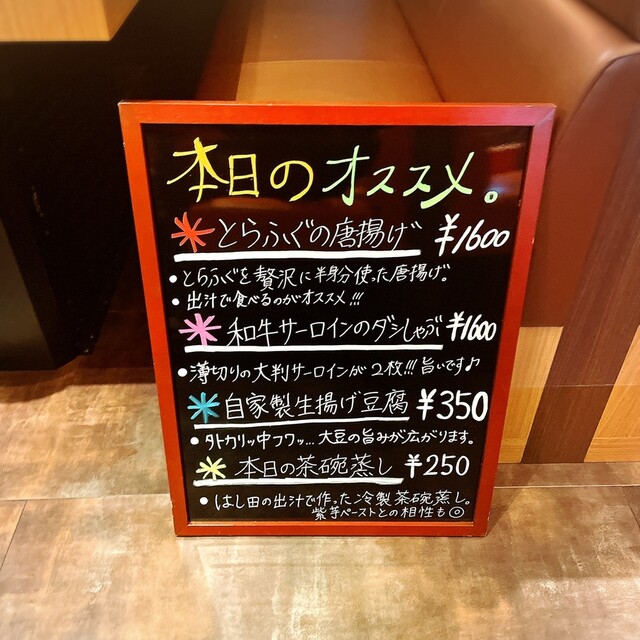 本日のオススメ。
とらふぐの唐揚げ ¥1600
・とらふぐを贅沢に半身分使った唐揚げ。
・出汁で食べるのがオススメ!!!
和牛サーロインのダシしゃぶ ¥1600
・薄切りの大判サーロインが2枚!!!旨いです♪
自家製生揚げ豆腐 ¥350
・外カリッ中フワッ…大豆の旨みが広がります。
本日の茶碗蒸し ¥250
・はし田の出汁で作った冷製茶碗蒸し。
紫芋ペーストとの相性も◎